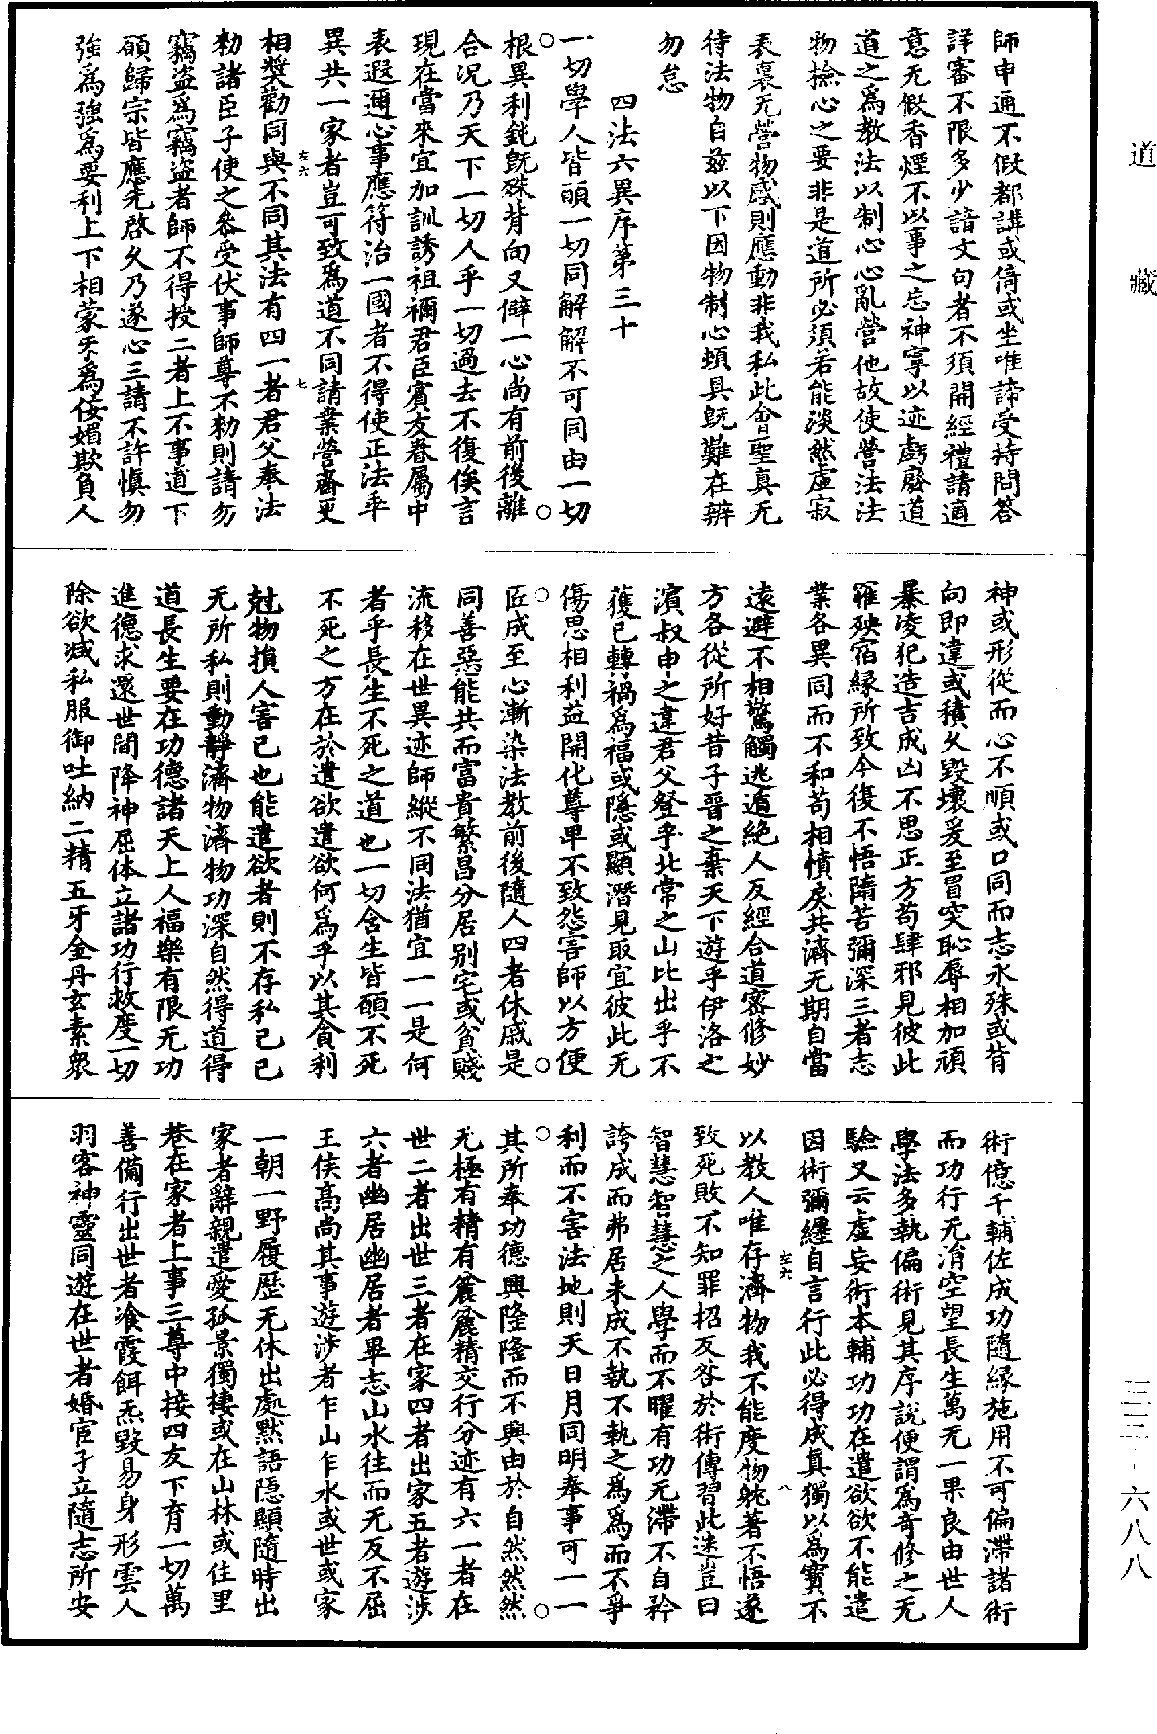 道藏
師申通不假都講或倚或坐唯諦受持問答
詳審不限多少諳文句者不須開經禮請適
意无假香煙不以事之忘神寧以迹虧廢道
道之爲教法以制心心亂營他故使營法法
物撿心之要非是道所必須若能淡然虛寂
表裏无營物感則應動非我私此會聖真无
待法物自茲以下因物制心煩具旣難在辨
勿怠
四法六異序第三十
一切學人皆願一切同解解不可同由一切
根異利鈍旣殊背向又僻一心尚有前後離
合況乃天下一切人乎一切過去不復俟言
現在當來宜加訓誘祖禰君臣賓友眷屬中
表遐邇心事應符治一國者不得使正法乎
異共一家者豈可致爲道不同請業營齋更
相獎勸同與不同其法有四一者君父奉法
勑諸臣子使之叅受伏事師尊不勑則請勿
竊盜爲竊盜者師不得授二者上不事道下
願歸宗皆應先啓久乃遂心三請不許愼勿
強爲強爲要利上下相蒙矛爲佞媚欺負人
神或形從而心不順或口同而志永殊或背
向卽違或積久毀壞爰至冒突恥辱相加頑
暴凌犯造吉成凶不思正方苟肆邪見彼此
罹殃宿緣所致今復不悟隋苦彌深三者志
業各異同而不和苟相憤戾共濟无期自當
遠避不相驚觸逃遁絕人反經合道密修妙
方各從所好昔子晉之棄天下遊乎伊洛之
濱叔申之違君父登乎北常之山比出乎不
獲已轉禍爲福或隱或顯潛見取宜彼此无
傷思相利益開化尊卑不致怨害師以方便
匠成至心漸染法教前後隨人四者休戚是
同善惡能共而富貴繁昌分居別宅或貧賤
流移在世異迹師縱不同法猶宜一一是何
者乎長生不死之道也一切含生皆願不死
不死之方在於遣欲遣欲何爲乎以其貪利
尅物損人害己也能遣欲者則不存私己己
无所私則動靜濟物濟物功深自然得道得
道長生要在功德諸天上人福樂有限无功
進德求還世間降神屈体立諸功行救度一切
除欲減私服御吐納二精五牙金丹玄素衆
術億千輔佐成功隨緣施用不可偏滯諸術
而功行无消空望長生萬无一果良由世人
學法多執偏術見其序說便謂爲奇修之无
驗又云虛妄術本輔功功在遣欲欲不能遣
因術彌纏自言行此必得成真獨以爲寳不
以教人唯存濟物我不能度物躭著不悟遂
致死敗不知罪招反咎於術傳習此迷豈曰
智慧智慧之人學而不曜有功无滯不自矜
誇成而弗居未成不執不執之爲爲而不爭
利而不害法地則天日月同明奉事可一一
其所奉功德興隆隆而不興由於自然然然
无極有精有麄麄精交行分迹有六一者在
世二者出世三者在家四者出家五者遊涉
六者幽居幽居者畢志山水往而无反不屈
王侯高尚其事遊涉者乍山乍水或世或家
一朝一野履歷无休出處默語隱顯隨時出
家者辭親遣愛孤景獨棲或在山林或住里
巷在家者上事三尊中接四友下育一切萬
善備行出世者飡霞餌炁毀易身形雲人
羽客神靈同遊在世者婚宦孑立隨志所安
左六
七
左六
八
三三-六八八